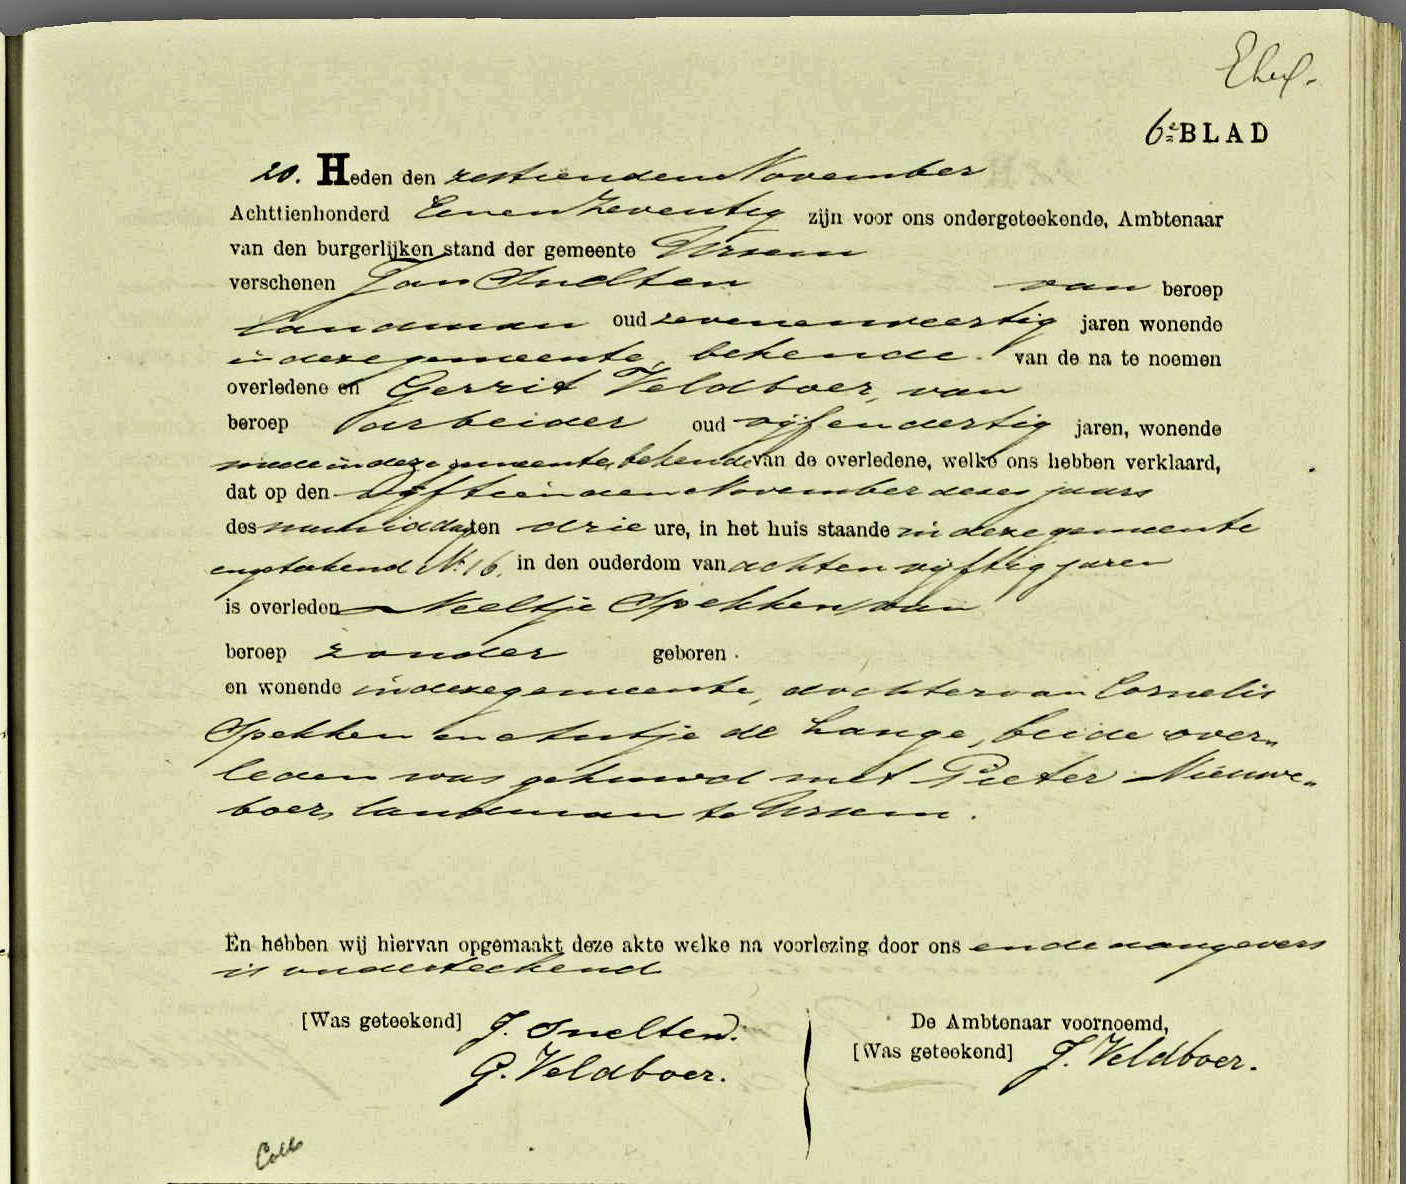 6e BLAD
20. Heden den zestienden November
Achttienhonderd Eenenzeventig zijn voor ons ondergeteekende, Ambtenaar
van den burgerlijken stand der gemeente Ursem
verschenen Jan Snelten van beroep
landman oud zevenenveertig jaren wonende
in deze gemeente, bekende van de na te noemen
overledene en Gerrit Veldboer, van
beroep arbeider oud vijfendertig jaren, wonende
mede in deze gemeente, bekende van de overledene, welke ons hebben verklaard,
dat op den vijftienden November dezes jaars
des namiddags ten drie ure, in het huis staande in deze gemeente
engetekend N. 16. in den ouderdom van achtenvijftig jaren
is overleden Neeltje Spekken, van
beroep zonder geboren
en wonende in deze gemeente, dochter van Cornelis
Spekken en Antje de Lange, beide over„
leden was gehuwd met Pieter Nieuwe„
boer, landman te Ursem.
En hebben wij hiervan opgemaakt deze akte welke na voorlezing door ons en de aangevers
is onderteekend
[Was geteekend] J. Snelten.
G. Veldboer.
De Ambtenaar voornoemd,
[Was geteekend] J. Veldboer.
Coll